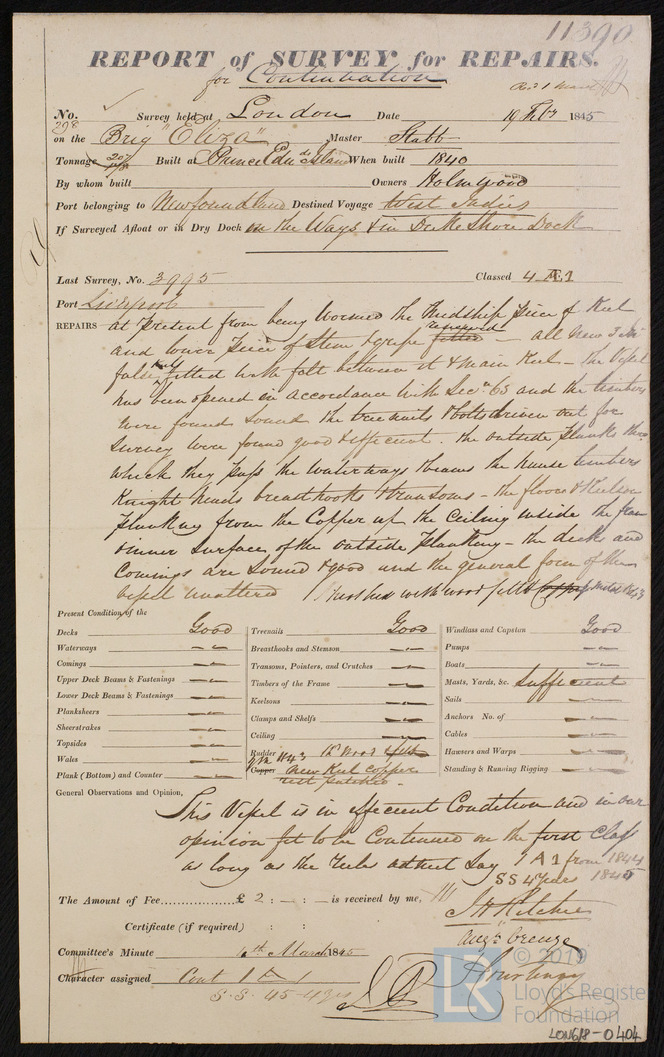 11390
REPORT of SURVEY for REPAIRS.
for Continuation
No. 398 Survey held at London Date 19 Feby 1845
on the Brig "Eliza" Master Stabb
Tonnage Built at Prince Edwds Island When built 1840
By whom built Owners Holmwood
Port belonging to Newfoundland Destined Voyage West Indies
If Surveyed Afloat or in Dry Dock on the Ways & in Duke Shore Dock
Last Survey, No. 3995 Classed 4 Æ 1
Port Liverpool
REPAIRS at present from being wormed the Midship piece of Keel
and lower piece of Stem & gripe renewed — all new
false keel fitted with felt between it & main Keel — the Vessel
has been opened in accordance with Secn 63 and the timbers
were found sound the treenails & bolts driven out for
survey were found good & efficient. the outside planks thro
which they pass the waterways beams the hause timbers
Knight heads breasthooks & transoms — the floors & Keelson
planking from the Copper up the ceiling inside the frame
& inner surface of the outside planking — the decks and
Comings are sound & good and the general form of the
vessel unaltered
Present Condition of the
Decks Good
Waterways
Comings
Upper Deck Beams & Fastenings
Lower Deck Beams & Fastenings
Planksheers
Sheerstrakes
Topsides
Wales
Plank (Bottom) and Counter
Treenails Good
Breasthooks and Stemson
Transoms, Pointers, and Crutches
Timbers of the Frame
Keelsons
Clamps and Shelfs
Ceiling
Rudder
Copper new Keel Copper
rest patched.
Windlass and Capston Good
Pumps
Boats
Masts, Yards, &c. Sufficient
Sails
Anchors No. of
Cables
Hawsers and Warps
Standing & Running Rigging
General Observations and Opinion,
This Vessel is in efficient Condition and in our
opinion fit to be Continued on the first Class
as long as the rules admit Say 1 A 1 from 1844
SS 4 Years 1845
The Amount of Fee £ 2 : — : — is received by me,
J H Ritchie
Certificate (if required) : :
Augn Creuze
Committee's Minute 4th March 1845
Character assigned Cont 1 A 1
S.S. 45-4 yrs
© 2019
LR
Lloyd's Register
Foundation
LON618-0404